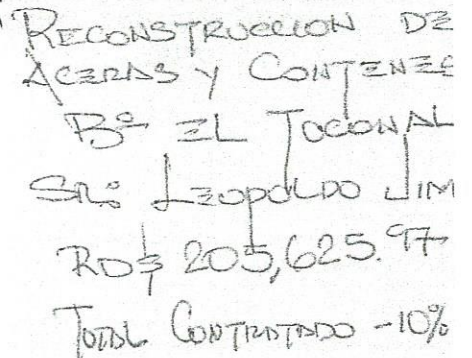 RECONSTRUCCION DE
ACERAS Y CONTENE
Bº EL TOCONAL
SR: LEOPOLDO JIM
RD$ 205,625.97
TOTAL CONTRATADO -10%